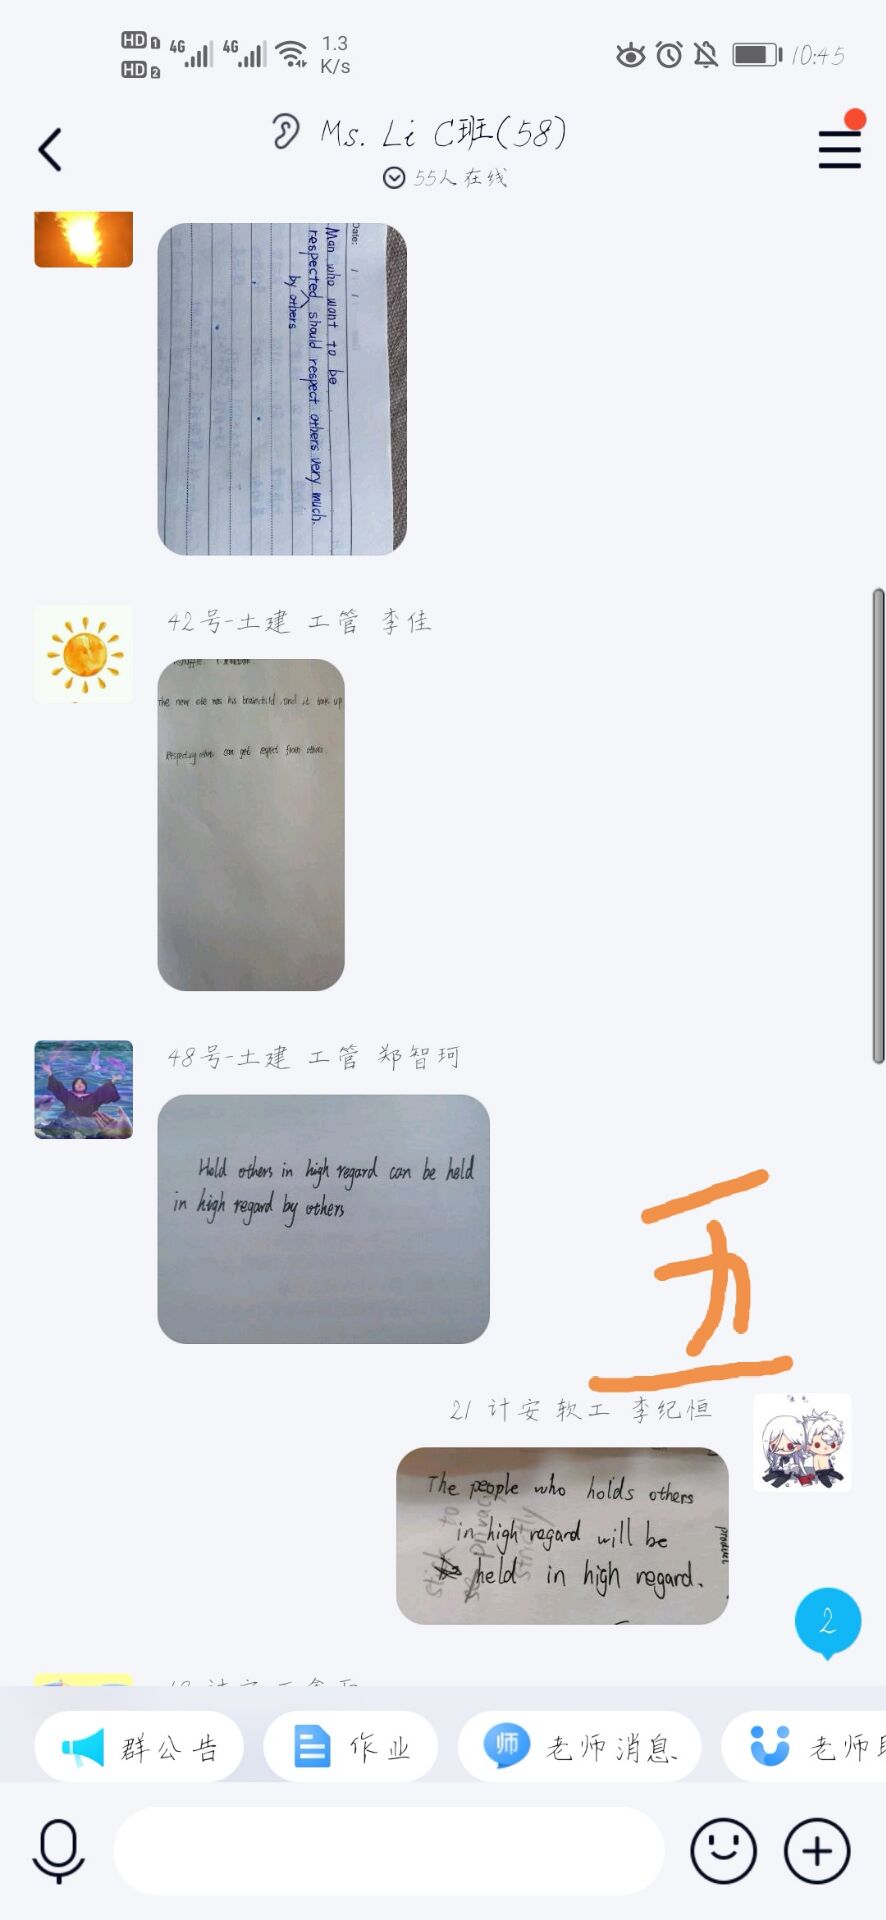 HD 1 4G 4G 1.3
HD 2 K/s
10:45
Ms. Li C班(58)
55人在线
Date: / /
Man who want to be
respected should respect others very much.
by others
42号-土建 工管 李佳
The new one was his brainchild, and it took up
Respecting others can get respect from others.
48号-土建 工管 郑智珂
Held others in high regard can be held
in high regard by others
五
21 计安软工 李纪恒
The people who holds others
in high regard will be
held in high regard.
stick to
strictly
product
2
群公告
作业
师 老师消息
老师